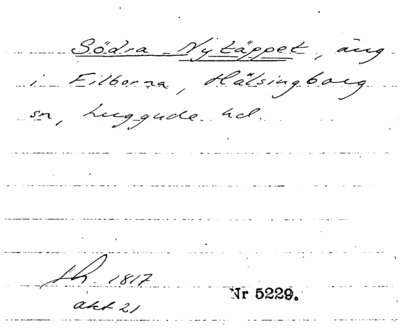 Södra Nytäppet, äng
i Filborna, Hälsingborg
sn, Luggude hd.
sh. 1817
akt 21
Nr 5229.